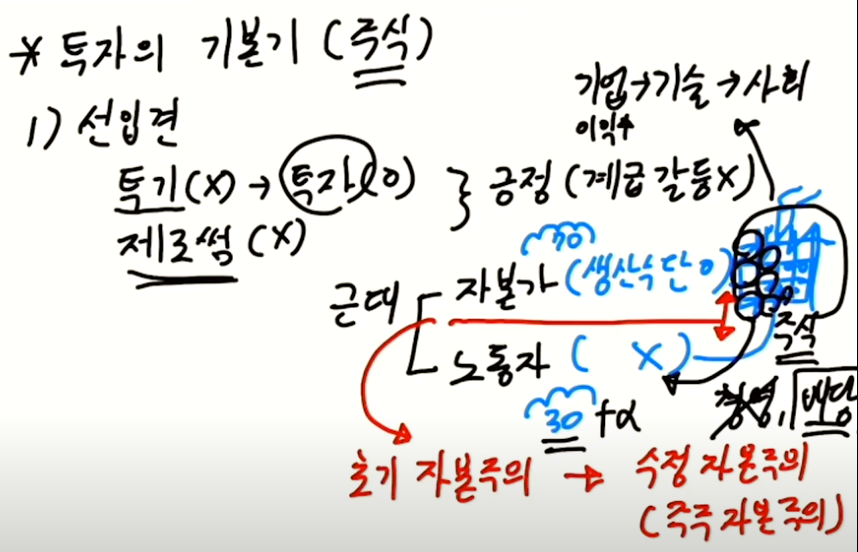 * 투자의 기본기 (주식)
기업→기술→사회
이익↑
1) 선입견
투기(X) → 투자(O) } 긍정 (계급갈등X)
제로썸 (X)
70
근대
자본가 (생산수단 O)
주식
노동자 ( X)
30 +α
경영, 배당
초기 자본주의 → 수정 자본주의
(주주 자본주의)